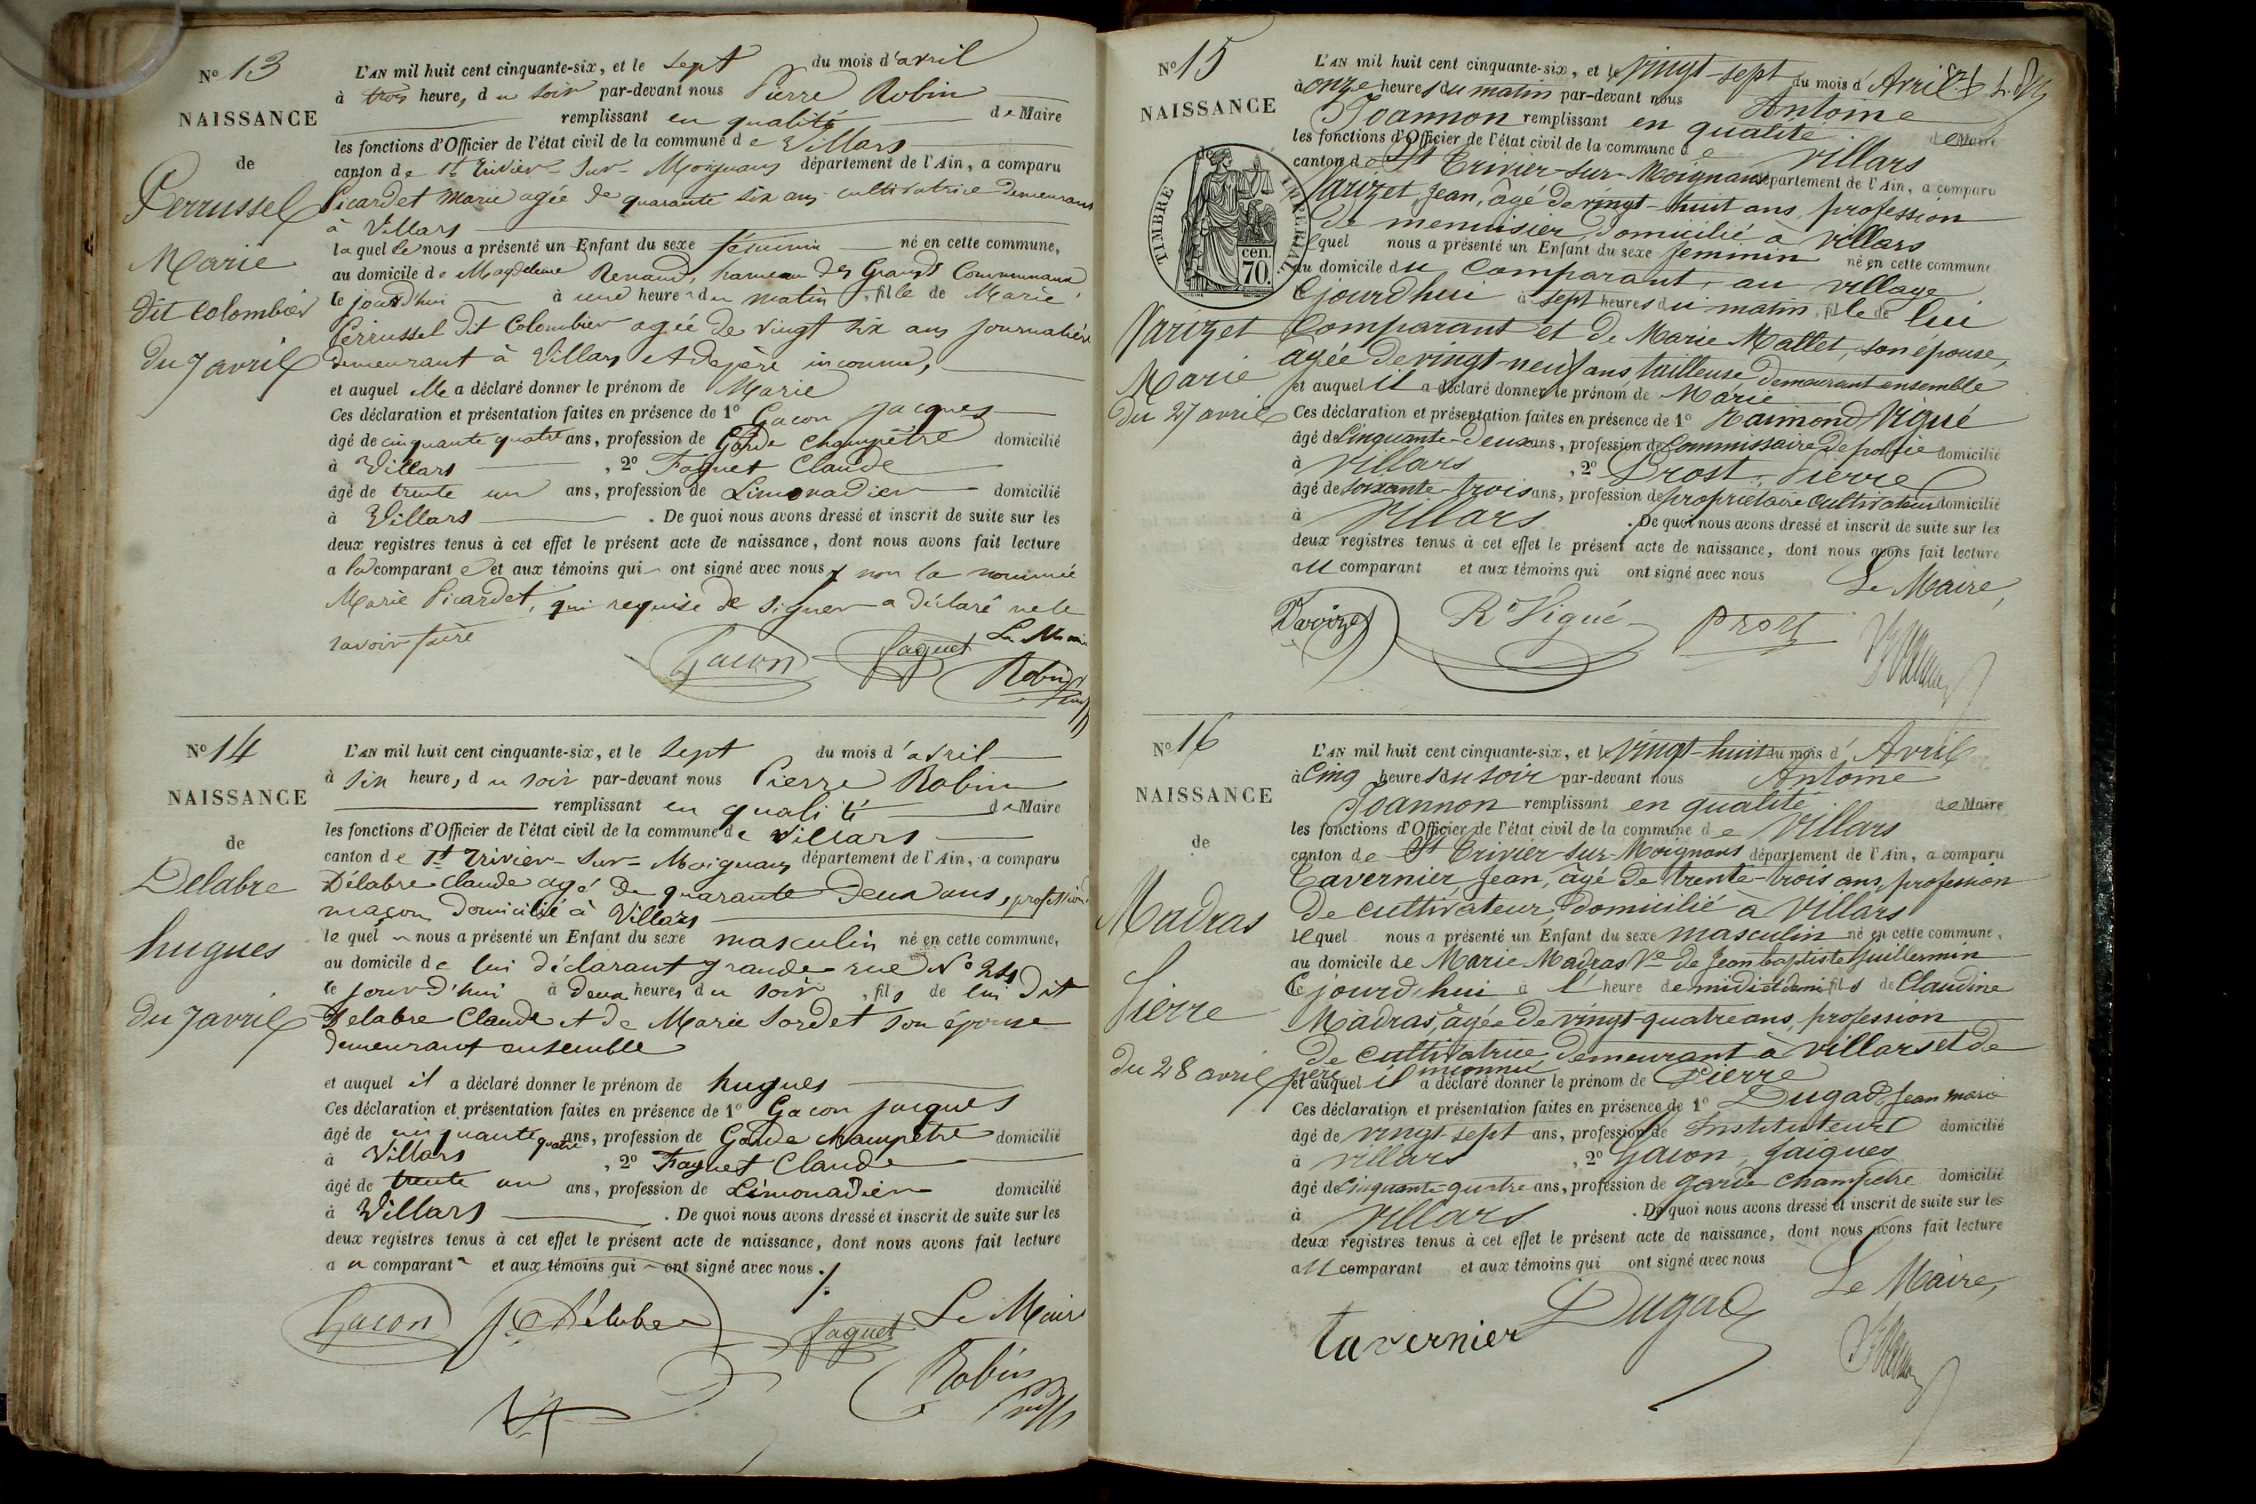 N° 13
NAISSANCE
de
Perrussel
Marie
dit Colombier
du 7 avril
L'AN mil huit cent cinquante-six, et le sept du mois d'avril
à trois heures, du soir par-devant nous Pierre Robin
remplissant en qualité de Maire
les fonctions d'Officier de l'état civil de la commune de Villars
canton de St Trivier-sur-Moignans département de l'Ain, a comparu
Picardet Marie agée de quarante six ans cultivatrice demeurant
à Villars
laquelle nous a présenté un Enfant du sexe féminin né en cette commune,
au domicile de Magdeleine Renaud, hameau des Grands Communaux
le jourd'hui à une heure du matin, fille de Marie
Perrussel dit Colombier agée de vingt six ans journalière
demeurant à Villars et de père inconnu,
et auquel elle a déclaré donner le prénom de Marie
Ces déclaration et présentation faites en présence de 1° Gacon Jacques
âgé de cinquante quatre ans, profession de Garde Champêtre domicilié
à Villars, 2° Faguet Claude
âgé de trente un ans, profession de Limonadier domicilié
à Villars. De quoi nous avons dressé et inscrit de suite sur les
deux registres tenus à cet effet le présent acte de naissance, dont nous avons fait lecture
a la comparante et aux témoins qui ont signé avec nous, non la nommée
Marie Picardet, qui requise de signer a déclaré ne le
savoir faire
Le Maire
Gacon Faguet Robin
N° 14
NAISSANCE
de
Delabre
hugues
du 7 avril
L'AN mil huit cent cinquante-six, et le sept du mois d'avril
à six heure, du soir par-devant nous Pierre Robin
remplissant en qualité de Maire
les fonctions d'Officier de l'état civil de la commune de Villars
canton de St Trivier-sur-Moignans département de l'Ain, a comparu
Délabre Claude agé de quarante deux ans, profession
maçon domicilié à Villars
lequel nous a présenté un Enfant du sexe masculin né en cette commune,
au domicile de lui déclarant grande rue N° 24
le jour d'hui à deux heures du soir, fils de lui dit
Delabre Claude et de Marie Sordet son épouse
demeurant ensemble
et auquel il a déclaré donner le prénom de hugues
Ces déclaration et présentation faites en présence de 1° Gacon Jacques
âgé de cinquante quatre ans, profession de Garde champêtre domicilié
à Villars, 2° Faguet Claude
âgé de trente un ans, profession de Limonadier domicilié
à Villars. De quoi nous avons dressé et inscrit de suite sur les
deux registres tenus à cet effet le présent acte de naissance, dont nous avons fait lecture
au comparant et aux témoins qui ont signé avec nous ./.
Gacon Délabre Faguet Le Maire
Robin
N° 15
NAISSANCE
de
TIMBRE IMPERIAL
70 cen.
Varizet
Marie
du 27 avril
L'AN mil huit cent cinquante-six, et le vingt-sept du mois d'Avril
à onze heures du matin par-devant nous Antoine
Joannon remplissant en qualité de Maire
les fonctions d'Officier de l'état civil de la commune de Villars
canton de St Trivier-sur-Moignans département de l'Ain, a comparu
Varizet Jean, âgé de vingt-huit ans, profession
de menuisier domicilié à Villars
lequel nous a présenté un Enfant du sexe feminin né en cette commune
au domicile du comparant, au village
le jourd'hui à sept heures du matin, fille de lui
Comparant et de Marie Mallet, son épouse,
agée de vingt-neuf ans, tailleuse, demeurant ensemble
et auquel il a déclaré donner le prénom de Marie
Ces déclaration et présentation faites en présence de 1° Raimond Vigué
âgé de Cinquante-deux ans, profession de Commissaire de police domicilié
à Villars, 2° Prost, Pierre
âgé de soixante-trois ans, profession de propriétaire cultivateur domicilié
à Villars. De quoi nous avons dressé et inscrit de suite sur les
deux registres tenus à cet effet le présent acte de naissance, dont nous avons fait lecture
au comparant et aux témoins qui ont signé avec nous
Le Maire,
Varizet Rd Vigué Prost
N° 16
NAISSANCE
de
Madras
Pierre
du 28 avril
L'AN mil huit cent cinquante-six, et le vingt-huit du mois d'Avril
à Cinq heures du soir par-devant nous Antoine
Joannon remplissant en qualité de Maire
les fonctions d'Officier de l'état civil de la commune de Villars
canton de St Trivier-sur-Moignans département de l'Ain, a comparu
Tavernier, Jean, âgé de trente-trois ans, profession
de cultivateur, domicilié à Villars
lequel nous a présenté un Enfant du sexe masculin né en cette commune,
au domicile de Marie Madras Ve de Jean baptiste Guillermin
le jourd'hui à l'heure de midi et demi fils de Claudine
Madras, âgée de vingt-quatre ans, profession
de cultivatrice, demeurant à Villars et de
père inconnu
et auquel il a déclaré donner le prénom de Pierre
Ces déclaration et présentation faites en présence de 1° Dugad Jean marie
âgé de vingt-sept ans, profession de Instituteur domicilié
à Villars, 2° Gacon, Jaiques
âgé de Cinquante quatre ans, profession de garde champêtre domicilié
à Villars. De quoi nous avons dressé et inscrit de suite sur les
deux registres tenus à cet effet le présent acte de naissance, dont nous avons fait lecture
au comparant et aux témoins qui ont signé avec nous
Le Maire,
tavernier Dugad